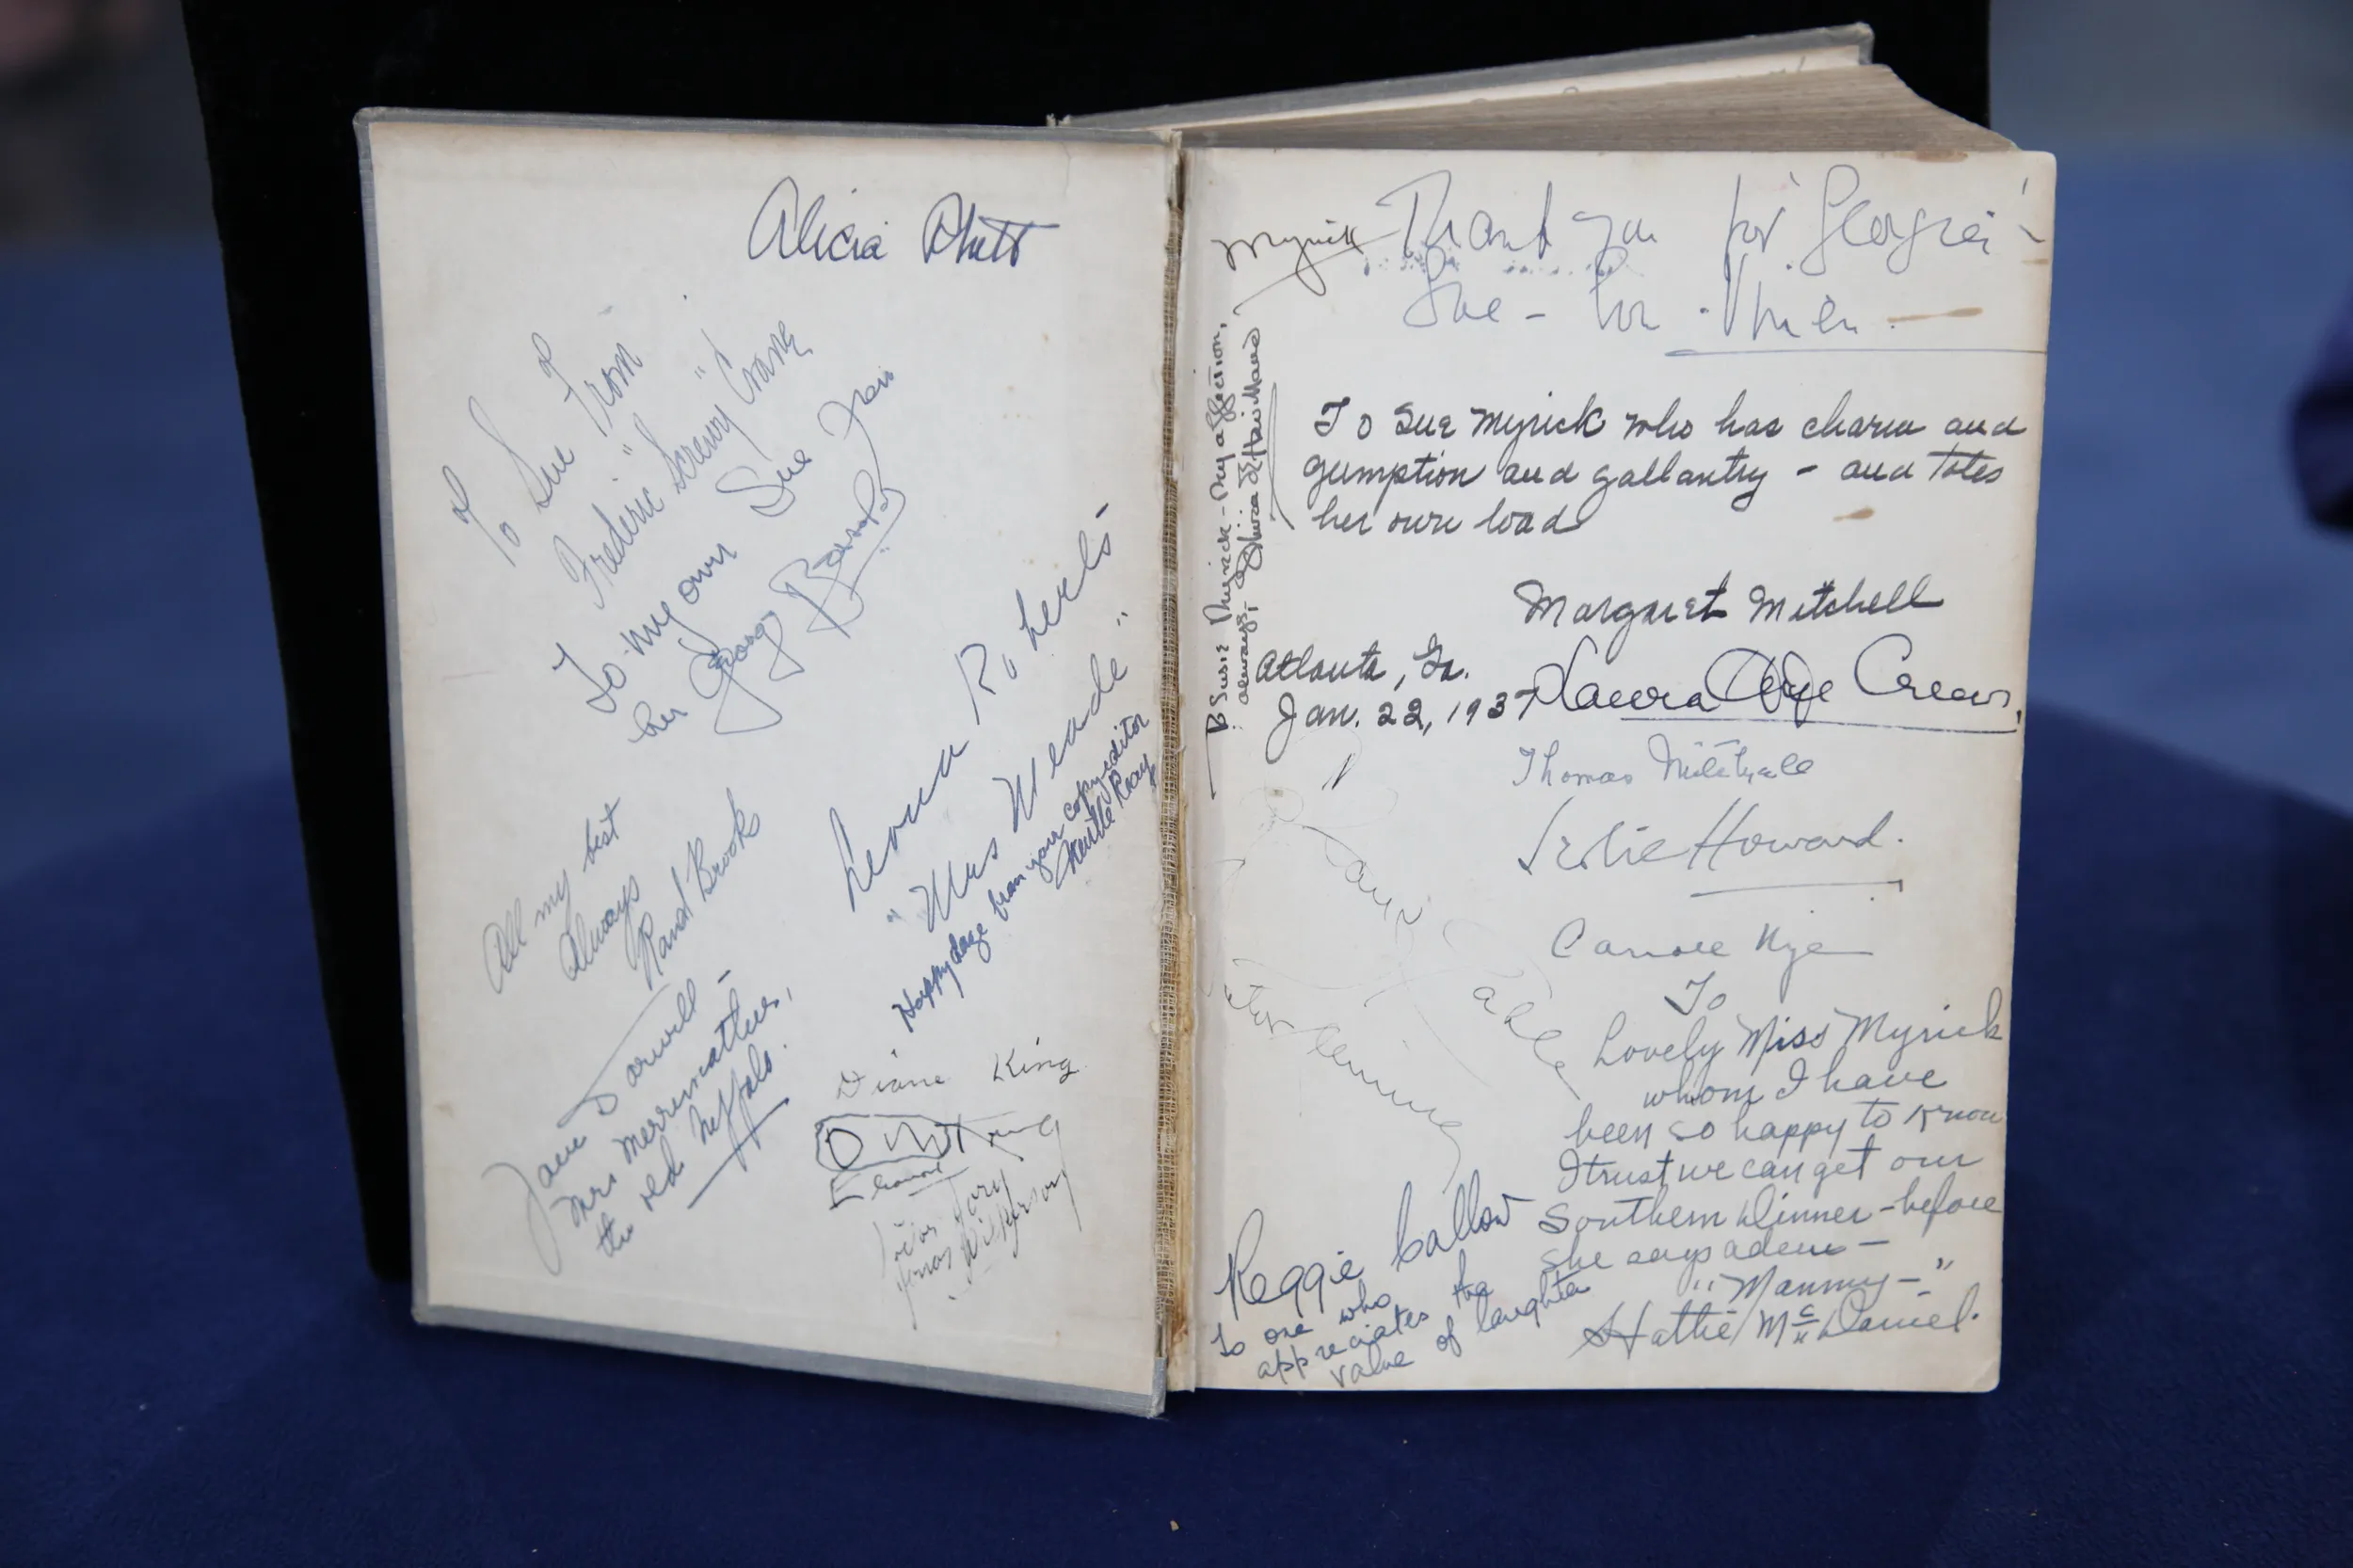 Alicia Rhett
To Sue From
Frederic "Screwy" Crane
To my own Sue from
her George
All my best
Always
Rand Brooks
Leona Roberts-
"Mrs Meade"
Happy daze from your copyeditor
Jane Darwell -
Mrs Merriweather,
the old
Diane King
Victor Jory
Jonas Wilkerson
Thank you for "Georgia"!
Sue -
To Sue Myrick who has charm and
gumption and gallantry - and totes
her own load
Margaret Mitchell
Atlanta, Ga.
Jan. 22, 1937
Susie Myrick - My affection,
always, Olivia de Havilland
Myrick
Laura Hope Crews,
Thomas Mitchell
Leslie Howard.
Carroll Nye
Clark Gable
Victor Fleming
To
Lovely Miss Myrick
whom I have
been so happy to know
I trust we can get our
Southern Dinner - before
she says adieu -
"Mammy -"
Hattie McDaniel.
Reggie Callow
To one who
appreciates the
value of laughter